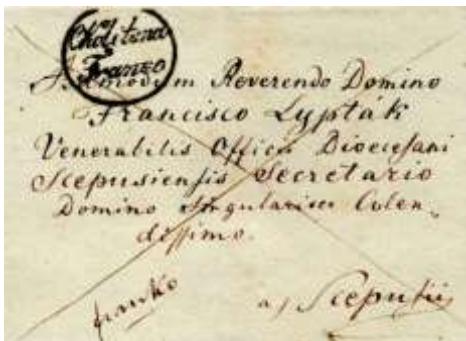 Franco
Admodum Reverendo Domino
Francisco Lypták
Venerabilis Officii Dioecesani
Scepusiensis Secretario
Domino Singulariter Colen„
dissimo.
franko
a/ Scepusii